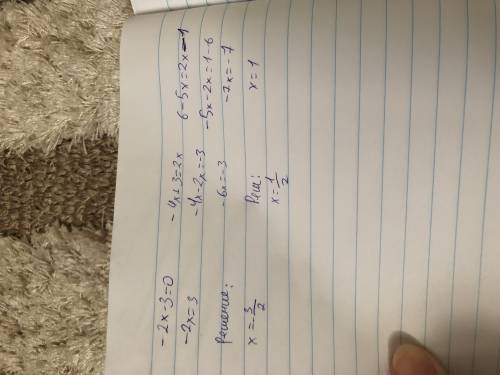 -2x-3=0
-2x=3
Решение:
x=-3/2
-4x+3=2x
-4x-2x=-3
-6x=-3
Реш:
x=1/2
6-5x=2x-1
-5x-2x=1-6
-7x=-7
x=1